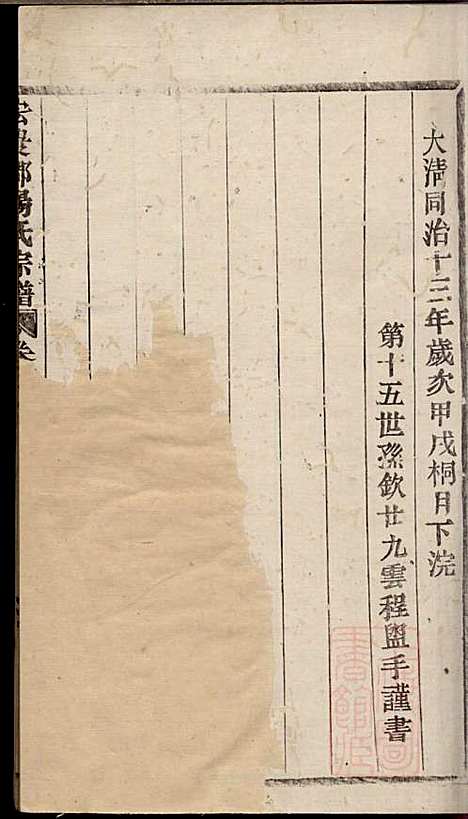 大清同治十三年歲次甲戌桐月下浣
第十五世孫欽廿九雲程盥手謹書
邵陽氏宗譜
卷